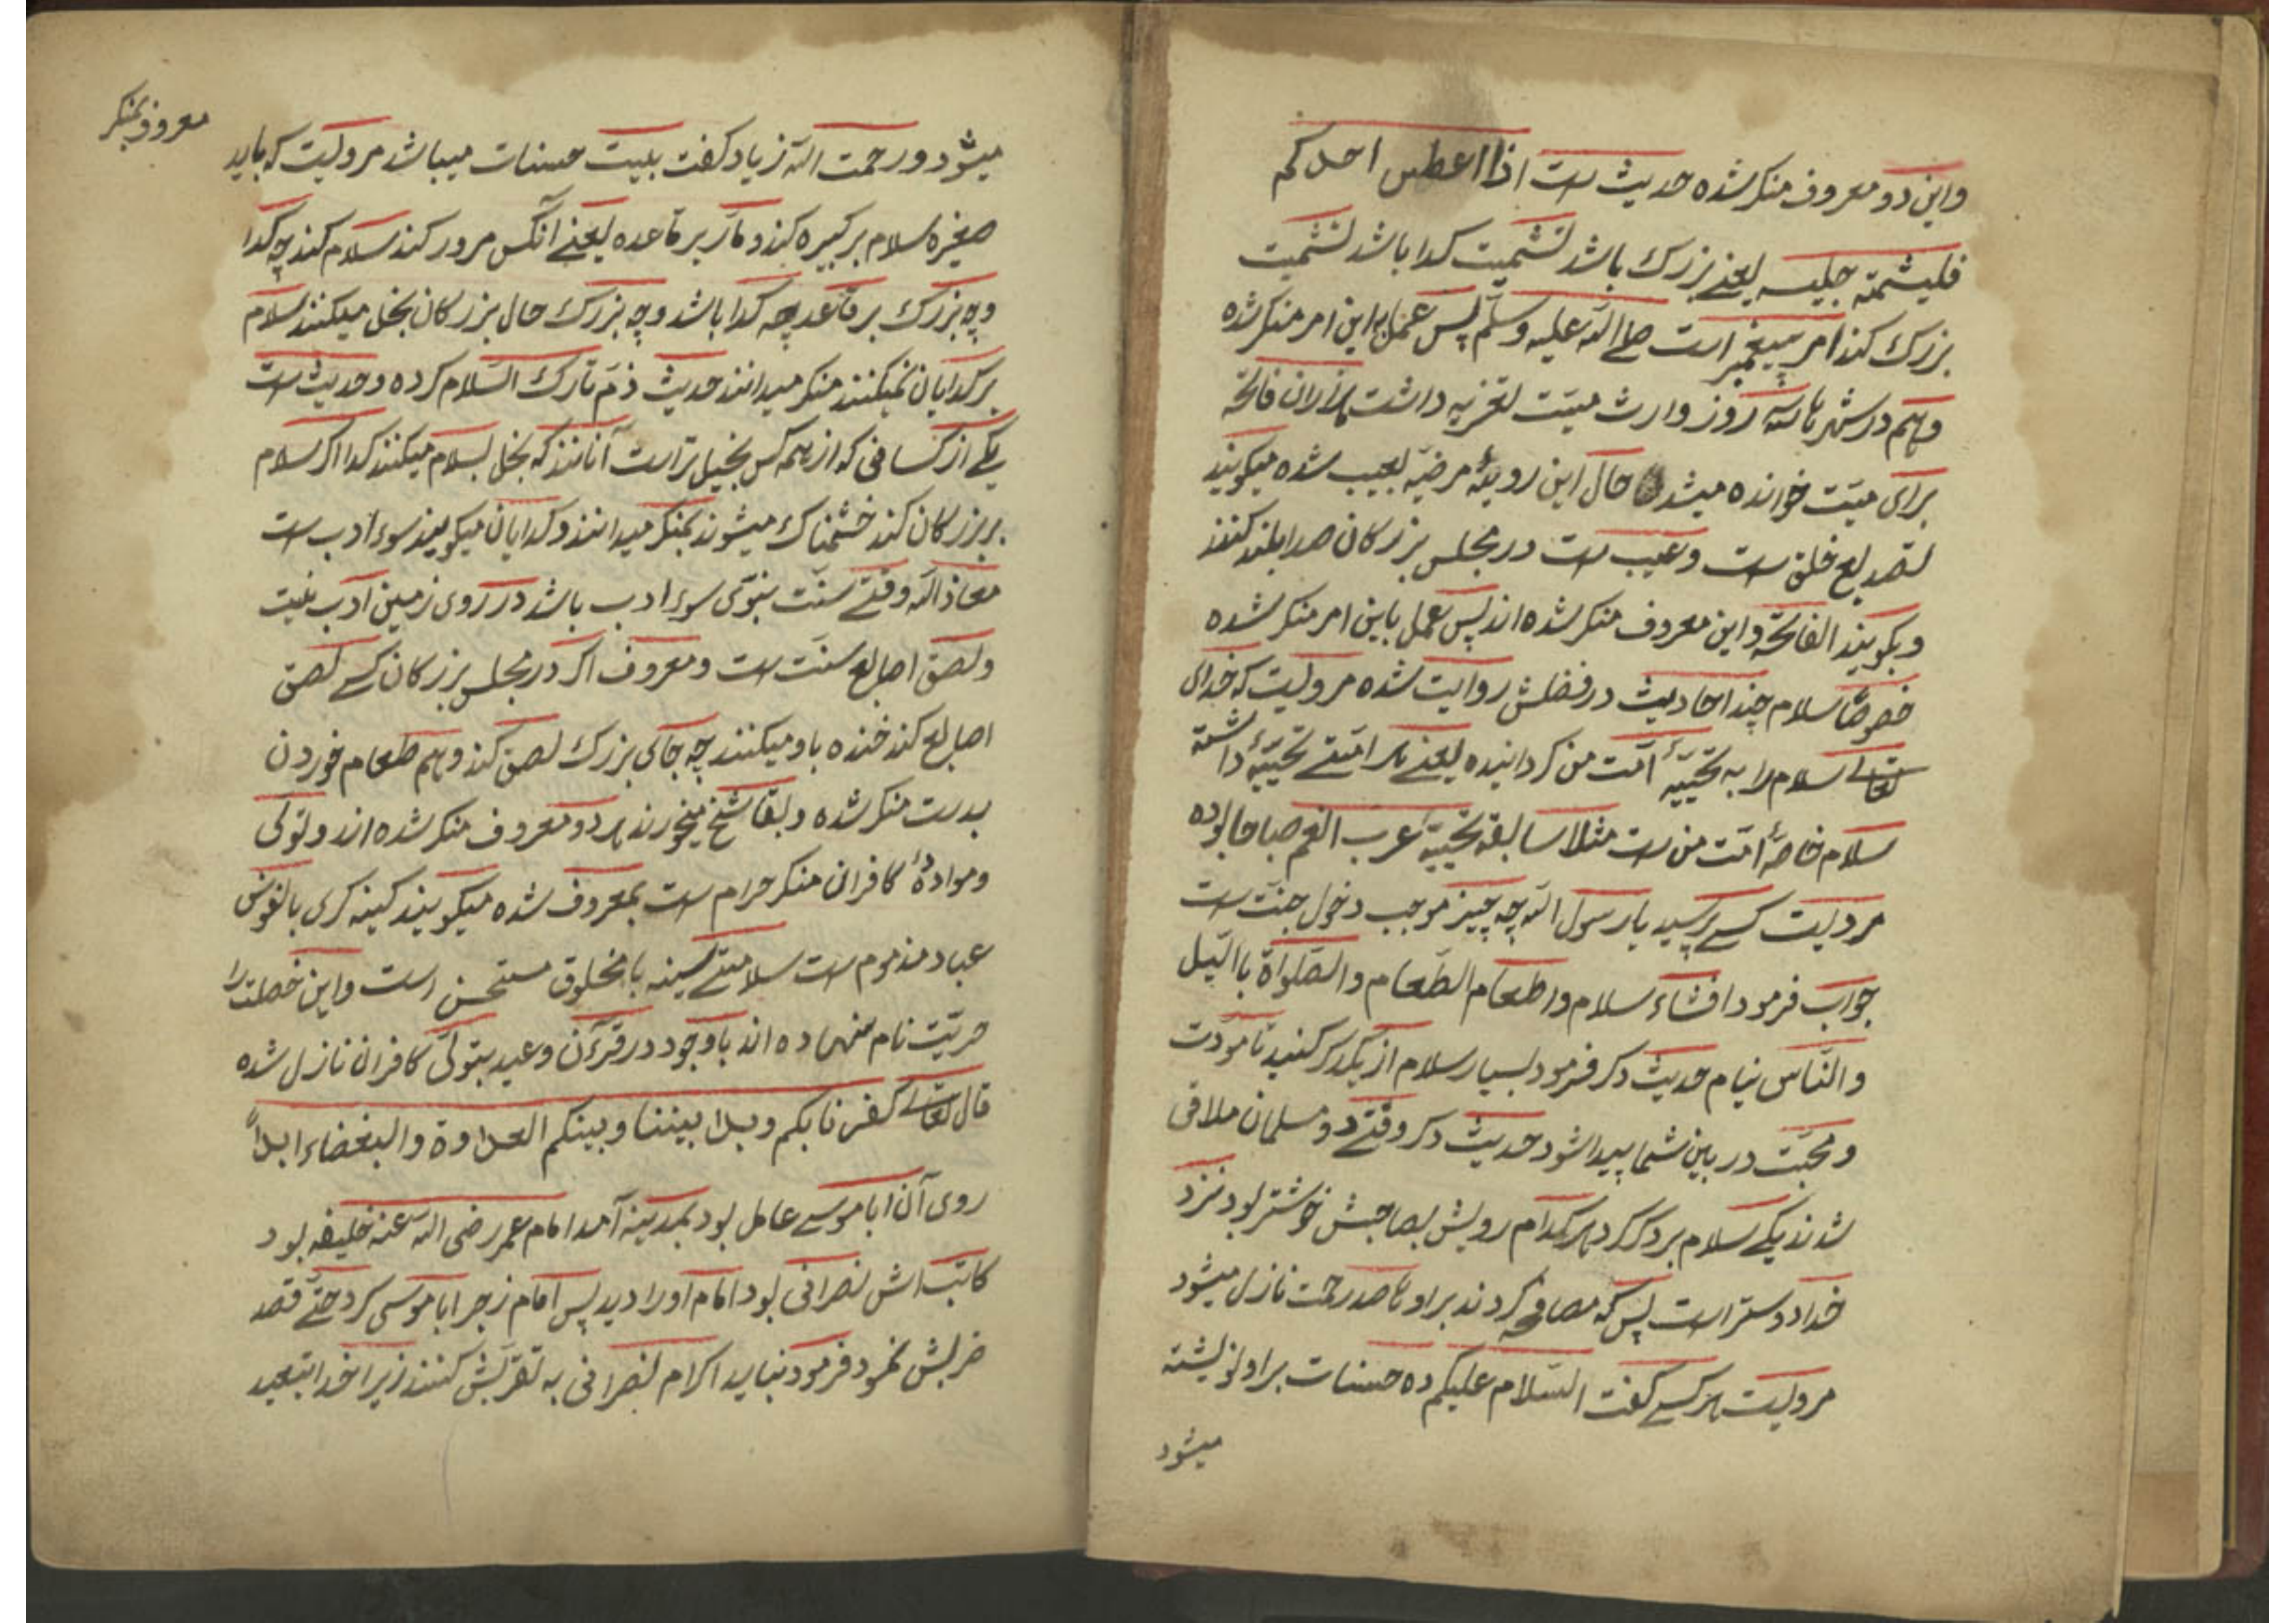 واین دو معروف منکر شده حدیث است اذا اعطس احدکم
فلیشمته جلیسه یعنے بزرك باشد تشمیت کدا باشد تشمیت
بزرك کند امر پیغمبر است صلے الله علیه وسلم پس عمل باین امر منکر شده
وهم در شهرها سه روز وارث میت تعزیه داشت فاتحه
برای میت خوانده میشد حال این رویهٔ مرضیه بعیب شده میکویند
تصدیع خلق است وعیب است در مجلس بزرکان صدا بلند کنند
وبکویند الفاتحة واین معروف منکر شده اند پس عمل باین امر منکر شده
خصوصًا سلام چند احادیث در فضلش روایت شده مرویست که خدای
تعالے سلام را به تحیهٔ امت من کردانیده یعنے هر امتے تحیهٔ داشته
سلام خاصهٔ امت من است مثلا سابقه تحیهٔ عرب انعم صباحا بوده
مرویست کسے پرسید یا رسول الله چه چیز موجب دخول جنت است
جواب فرمود افشاء سلام واطعام الطعام والصلواة باالیل
والناس نیام حدیث دکر فرمود بسیار سلام از یکدکر کنید تا مودت
ومحبت در بین شما پیدا شود حدیث دکر وقتے دو مسلمان ملاقی
شدند یکے سلام بر دکر کرد هرکدام رویش بصاحبش خوشتر بود نزد
خدا دوستر است پس که مصافحه کردند براو تا صد رحمت نازل میشود
مرویست هرکسے کفت السلام علیکم ده حسنات براو نویشته
میشود
معروف بمنکر
میشود ورحمت الله زیاد کفت بیست حسنات میباشد مرویست که باید
صغیره سلام بر کبیره کند ومار بر قاعده یعنے آنکس مرور کند سلام کند چه کدا
وچه بزرك بر قاعد چه کدا باشد وچه بزرك حال بزرکان بخل میکنند سلام
بر کدایان نمیکنند منکر میدانند حدیث ذم تارك السلام کرده وحدیث است
یکے از کسانی که از همه کس بخیل تر است آنانند که بخل بسلام میکنند کدا اکر سلام
بر بزرکان کند خشمناك میشوند بمنکر میدانند وکدایان میکویند سوء ادب است
معاذ الله وقتے سنت نبوی سوء ادب باشد در روی زمین ادب نیست
ولصق اصابع سنت است ومعروف اکر در مجلس بزرکان کسے لصق
اصابع کند خنده باو میکنند چه جای بزرك لصق کند وهم طعام خوردن
بدست منکر شده وبقاشخ میخورند هر دو معروف منکر شده اند وتولی
وموادهٔ کافران منکر حرام است بمعروف شده میکویند کینه کری بالنوس
عباد مذموم است سلامتے سینه با مخلوق مستحسن است واین خصلت را
حریت نام نهاده اند باوجود در قرءآن وعید بتولی کافران نازل شده
قال تعالے کفرنا بکم وبدا بیننا وبینکم العداوة والبغضاء ابداً
روی آن ابا موسے عامل بود بمدینه آمد امام عمر رضی الله عنه خلیفه بود
کاتب اش نصرانی بود امام اورا دید پس امام زجر ابا موسی کرد حتے قصد
ضربش نمود فرمود نباید اکرام نصرانی به تقربش کنند زیرا خدا بتبعید